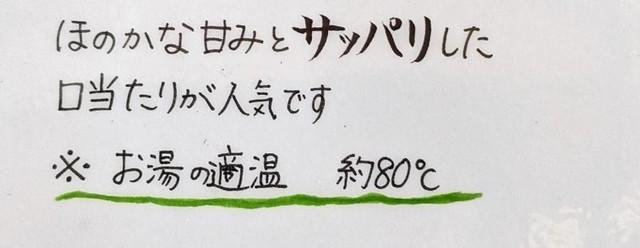 ほのかな甘みとサッパリした
口当たりが人気です
※ お湯の適温　約80℃